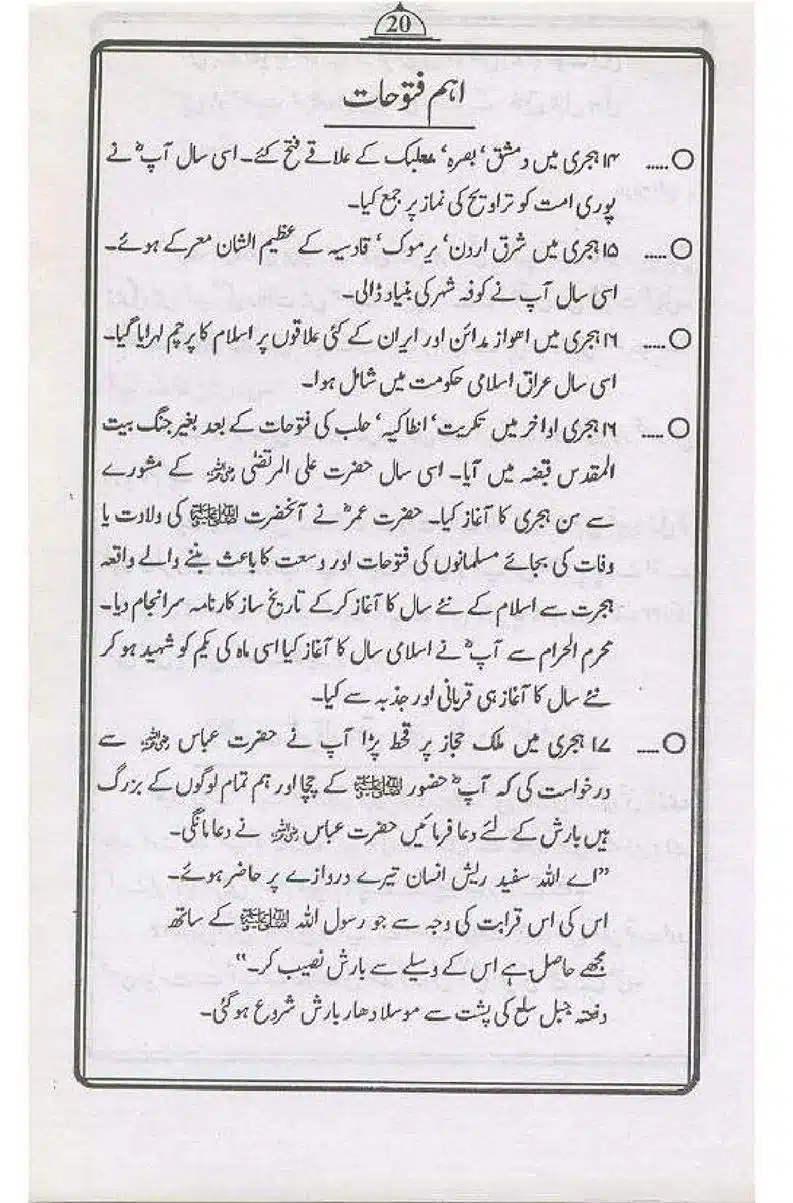 20
اہم فتوحات
○ ..... ۱۴ ہجری میں دمشق‘ بصرہ‘ بعلبک کے علاقے فتح کئے۔ اسی سال آپؓ نے
پوری امت کو تراویح کی نماز پر جمع کیا۔
○ ..... ۱۵ ہجری میں شرق اردن‘ یرموک‘ قادسیہ کے عظیم الشان معرکے ہوئے۔
اسی سال آپ نے کوفہ شہر کی بنیاد ڈالی۔
○ ..... ۱۶ ہجری میں اھواز مدائن اور ایران کے کئی علاقوں پر اسلام کا پرچم لہرایا گیا۔
اسی سال عراق اسلامی حکومت میں شامل ہوا۔
○ ..... ۱۶ ہجری اواخر میں تکریت‘ انطاکیہ‘ حلب کی فتوحات کے بعد بغیر جنگ بیت
المقدس قبضہ میں آیا۔ اسی سال حضرت علی المرتضیٰ رضی اللہ عنہ کے مشورے
سے سن ہجری کا آغاز کیا۔ حضرت عمرؓ نے آنحضرت ﷺ کی ولادت یا
وفات کی بجائے مسلمانوں کی فتوحات اور وسعت کا باعث بننے والے واقعہ
ہجرت سے اسلام کے نئے سال کا آغاز کرکے تاریخ ساز کارنامہ سرانجام دیا۔
محرم الحرام سے آپؓ نے اسلامی سال کا آغاز کیا اسی ماہ کی یکم کو شہید ہو کر
نئے سال کا آغاز ہی قربانی اور جذبہ سے کیا۔
○ ..... ۱۷ ہجری میں ملک حجاز پر قحط پڑا آپ نے حضرت عباس رضی اللہ عنہ سے
درخواست کی کہ آپؓ حضور ﷺ کے چچا اور ہم تمام لوگوں کے بزرگ
ہیں بارش کے لئے دعا فرمائیں حضرت عباس رضی اللہ عنہ نے دعا مانگی۔
”اے اللہ سفید ریش انسان تیرے دروازے پر حاضر ہوئے۔
اس کی اس قرابت کی وجہ سے جو رسول اللہ ﷺ کے ساتھ
مجھے حاصل ہے اس کے وسیلے سے بارش نصیب کر۔“
دفعتہ جبل سلع کی پشت سے موسلا دھار بارش شروع ہوگئی۔